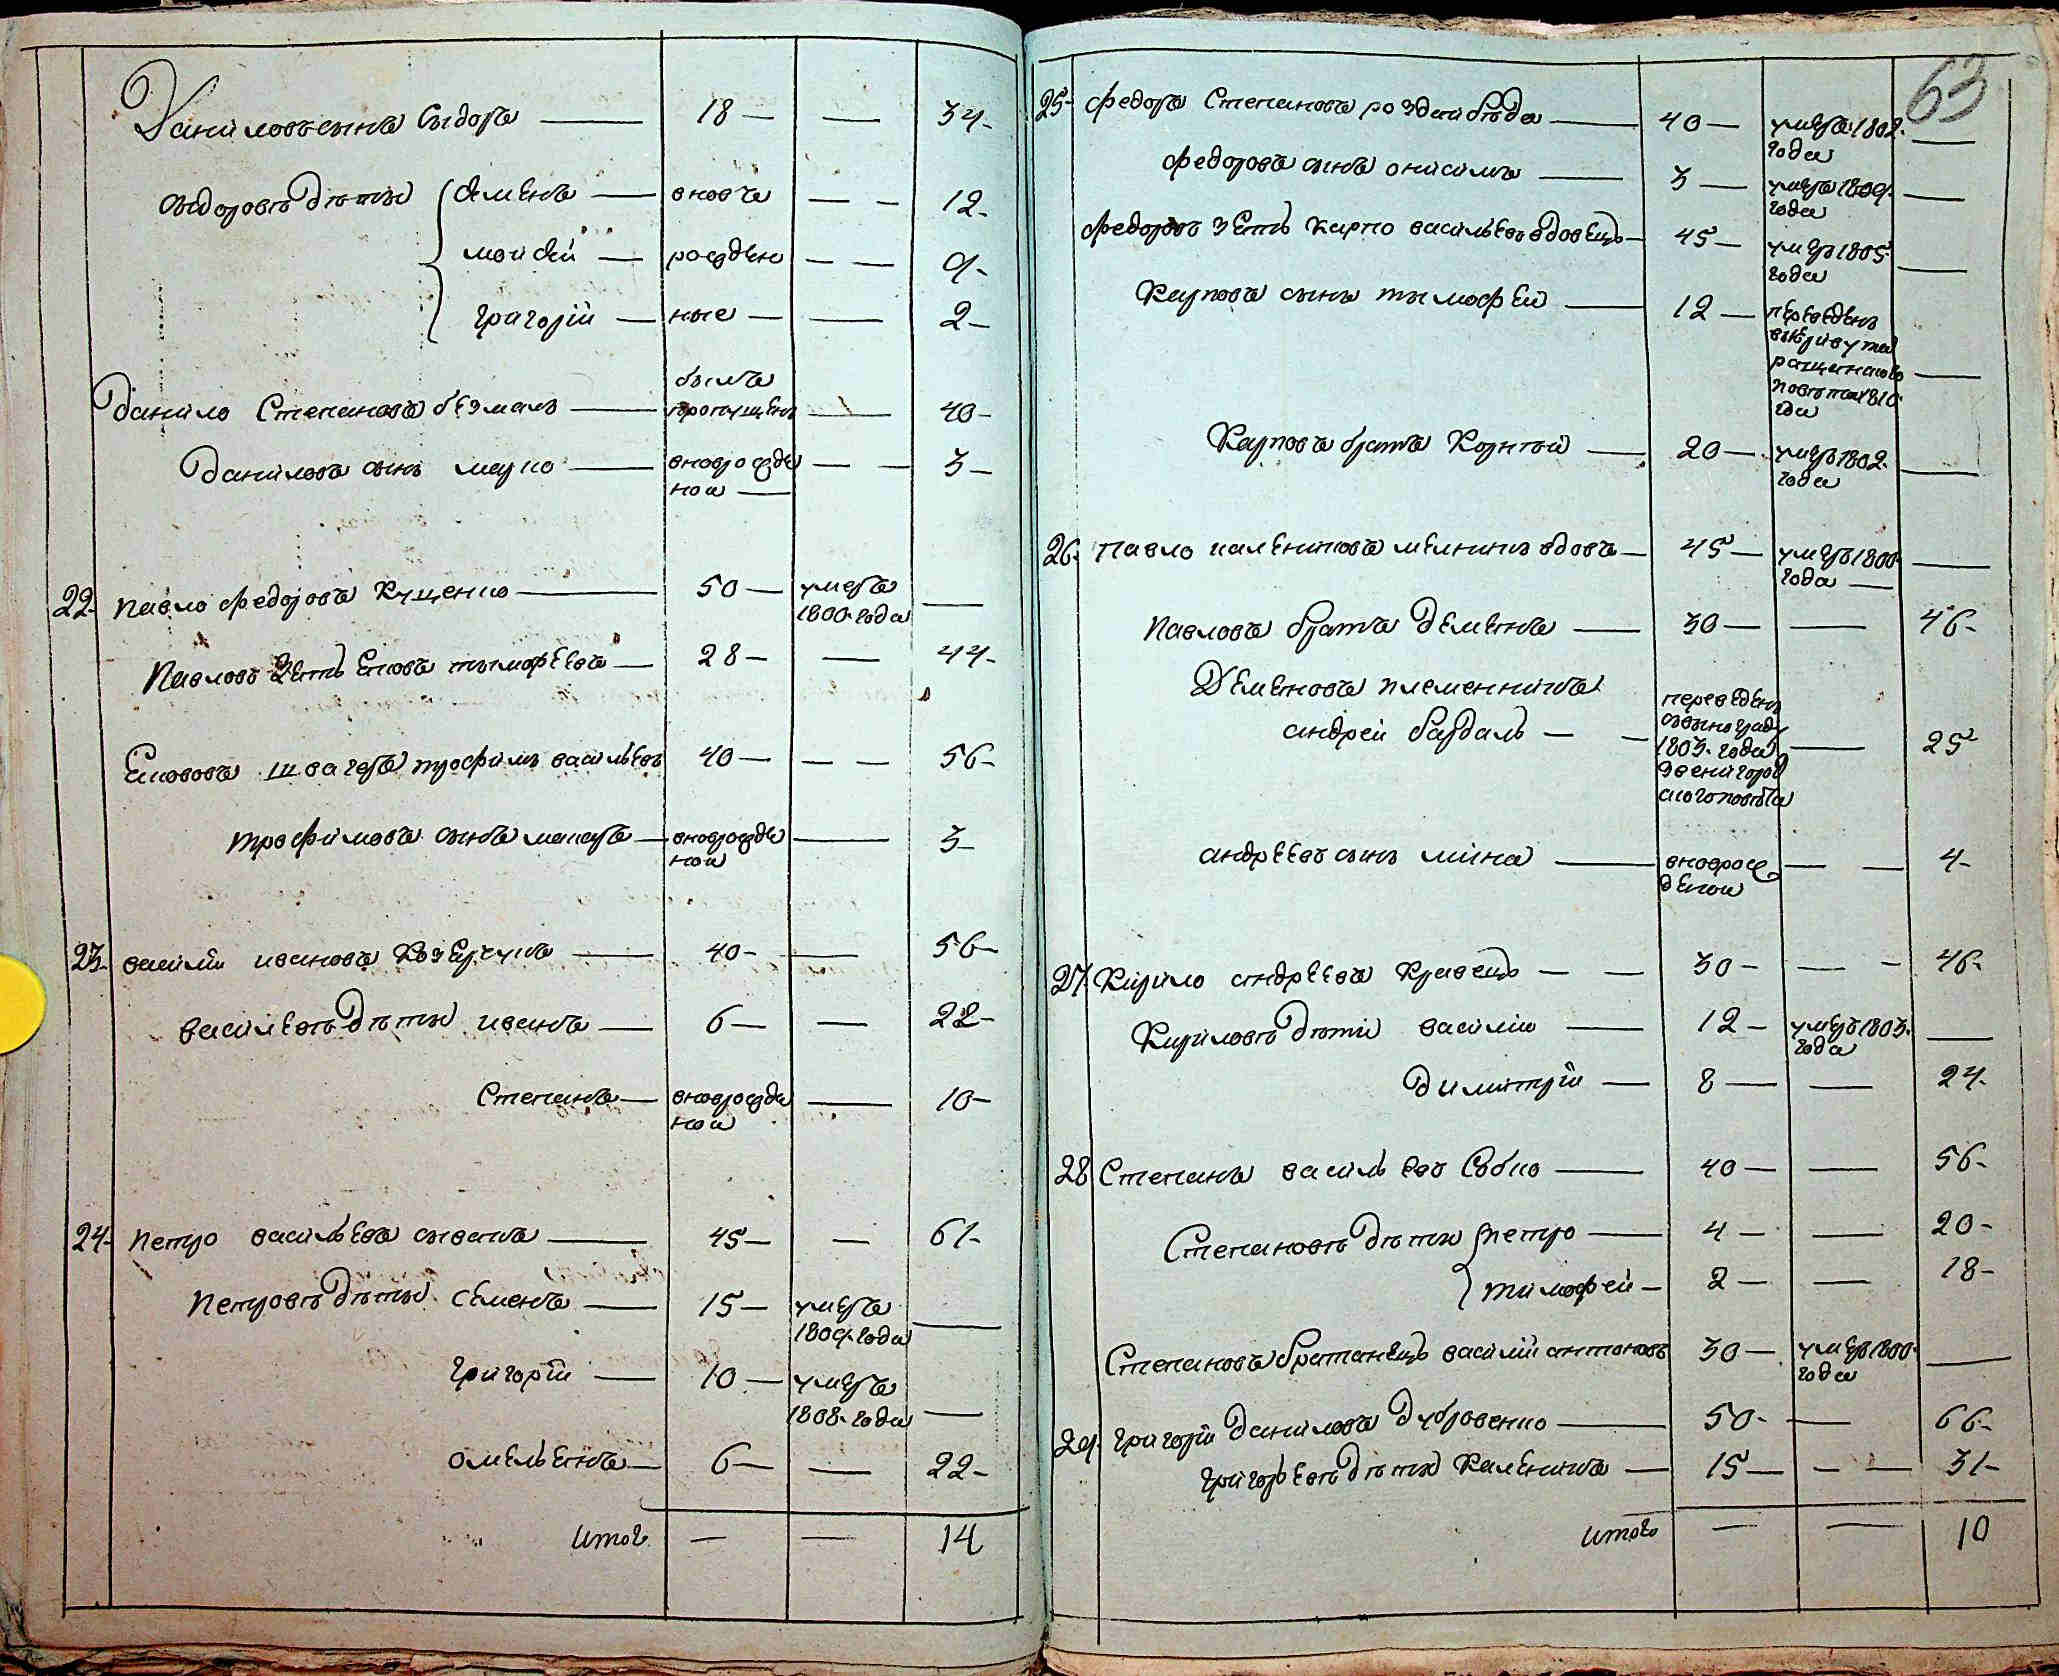 Даниловъ сынъ Сидоръ — 18 — — 34-
Сидоровы дѣти Семенъ — вновь — - 12-
мойсей — рожден — — 9-
григорій — ные — — 2-
Данило Степановъ безмалъ — былъ пропущенъ — 40-
Даниловъ сынъ марко — вноврожде ной — — - 3-
22- павло федоровъ Кущенко — 50 — умеръ 1800. года —
Павловъ зять Яковъ тымофѣевъ — 28 — — 44-
Якововъ швагеръ трофимъ васильевъ 40 — — - 56-
трофимовъ сынъ макаръ — вноврожде ной — 3-
23- василій ивановъ Козерчукъ — 40- — 56-
васильевы дѣты иванъ — 6 — — 22-
Степанъ — вноврожде ной — 10-
24- петро васильевъ сывакъ — 45 — — 61-
петровы дѣты семенъ — 15 — умеръ 1809. года —
григорій — 10 — умеръ 1808. года —
омельянъ — 6 — — 22-
итог. — — 14
63
25- федоръ Степановъ роздайбѣда — 40 — умеръ 1802. года —
федоровъ сынъ онисимъ — 3 — умеръ 1809. года —
федоровъ зять карпо васильевъ вдовецъ — 45 — умеръ 1805. года —
Карповъ сынъ тымофей — 12 — переведенъ 1810 года —
Карповъ братъ Корнѣй — 20 — умеръ 1802. года —
26- павло калениковъ мелникъ вдовъ — 45 — умеръ 1800. года —
павловъ братъ дементъ — 30 — — 46-
Дементовъ племенникъ
андрей бардакъ — - переведенъ 1803. года звенигород скаго повѣта — 25
андреевъ сынъ мина — вноврож деной — — 4-
27. Кирило андреевъ Кравецъ — - 30 - — - 46-
Кириловы дѣти василій — 12 — умеръ 1803. года —
димитрій — 8 — — 24-
28 Степанъ васильевъ Собко — 40 — — 56-
Степановы дѣты петро — 4 — — 20-
тимофей — 2 — — 18-
Степановъ братанецъ василій антоновъ 30 — умеръ 1800. года —
29. григорій даниловъ дубровенко — 50- — 66-
григорьевы дѣты каленикъ — 15 — - — 31-
итого — — 10